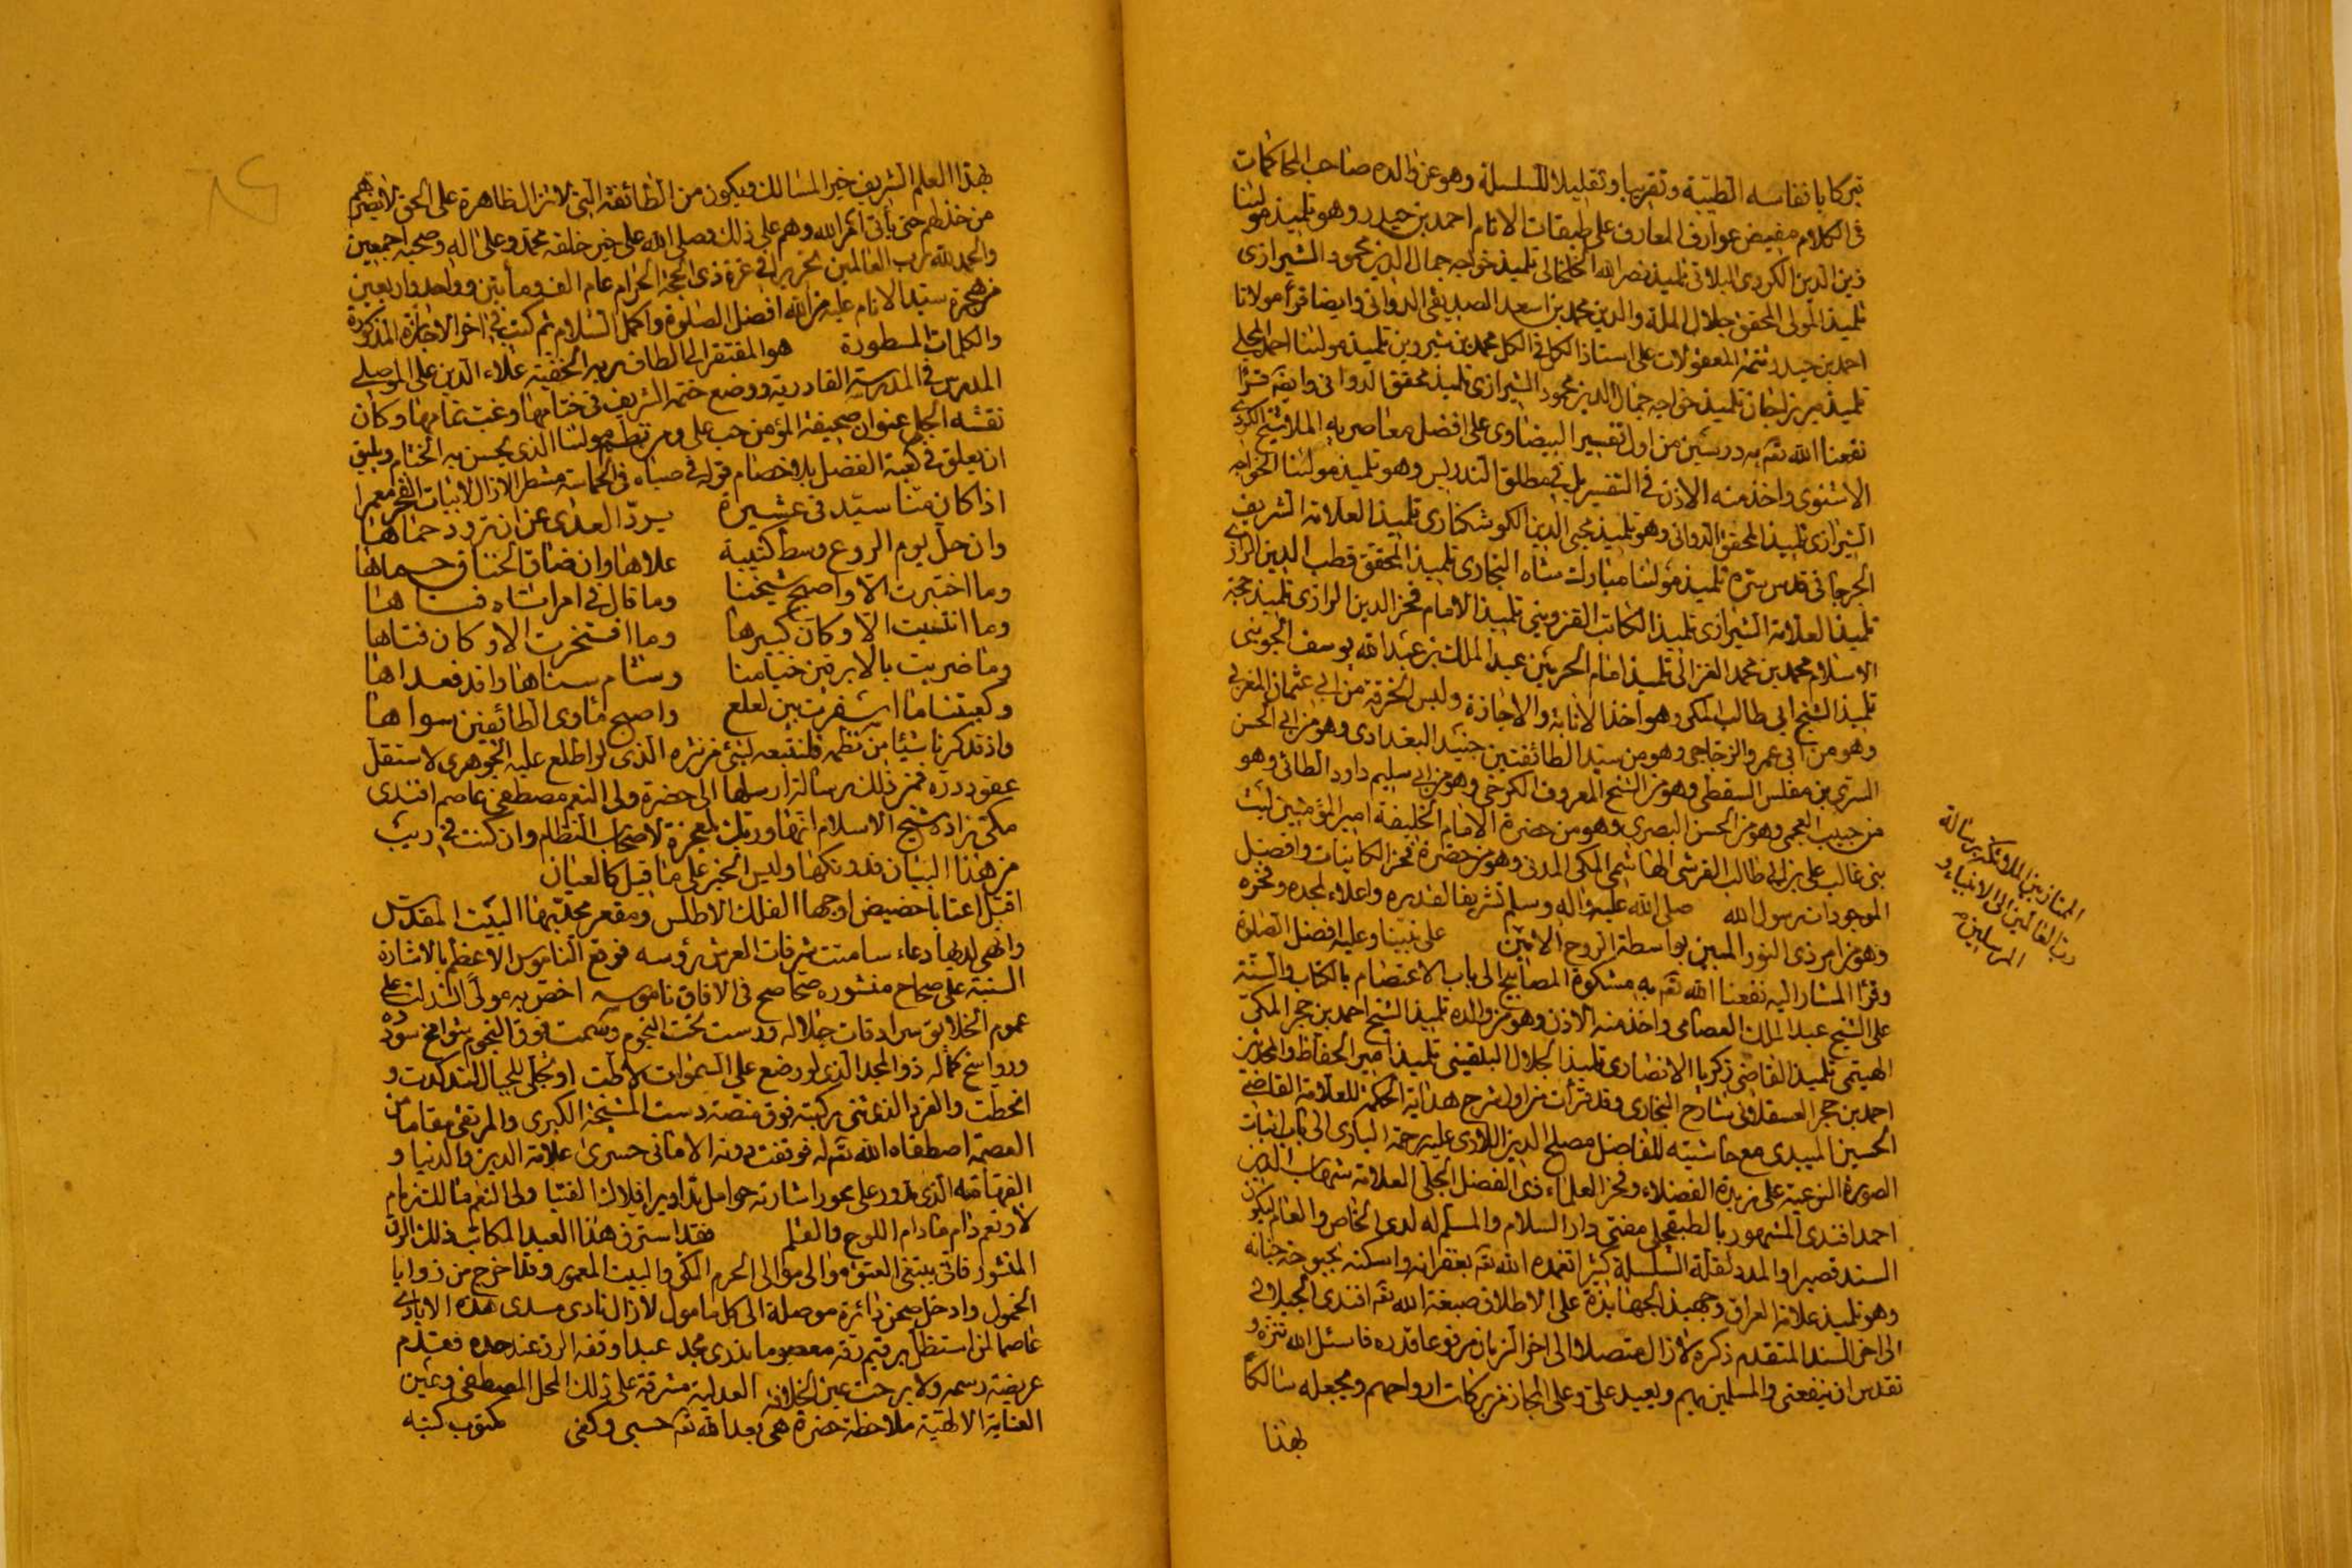 تبركا بانفاسه الطيبة وتقريبا وتقليلا للسلسلة وهو عن والده صاحب المحاكمات
في الكلام مفيض عوارف المعارف على طبقات الانام احمد بن حيدر وهو تلميذ مولٰنا
زين الدين الكردى البلاتى تلميذ نصر الله الخلخالى تلميذ خواجه جمال الدين محمود الشيرازى
تلميذ المولى المحقق جلال الملة والدين محمد بن اسعد الصديقى الدوانى وايضا قرأ مولانا
احمد بن حيدر تتمة المعقولات على استاذ الكل فى الكل محمد بن شيروين تلميذ مولٰنا احمد المجلى
تلميذ ميرزاجان تلميذ خواجه جمال الدين محمود الشيرازى تلميذ محقق الدوانى وايضا قرأ
نفعنا الله تعه به درسين من اول تفسير البيضاوى على افضل معاصريه الملا شيخ الكردى
الاشنوى واخذ منه الاذن فى التفسير بل فى مطلق التدريس وهو تلميذ مولٰنا الخواجه
الشيرازى تلميذ المحقق الدوانى وهو تلميذ محيى الدين الكوشكنارى تلميذ العلامة الشريف
الجرجانى قدس سره تلميذ مولٰنا مباركشاه البخارى تلميذ المحقق قطب الدين الرازى
تلميذ العلامة الشيرازى تلميذ الكاتب القزوينى تلميذ الامام فخر الدين الرازى تلميذ حجة
الاسلام محمد بن محمد الغزالى تلميذ امام الحرمين عبد الملك بن عبد الله يوسف الجوينى
تلميذ الشيخ ابى طالب المكى وهو اخذ الانابة والاجازة ولبس الخرقة من ابى عثمان المغربى
وهو من ابى عمر والزجاجى وهو من سيد الطائفتين جنيد البغدادى وهو من ابى الحسن
السرى بن مفلس السقطى وهو من الشيخ المعروف الكرخى وهو من ابى سليم داود الطائى وهو
من حبيب العجمى وهو من الحسن البصرى وهو من حضرة الامام الخليفة امير المؤمنين ليث
بنى غالب على بن ابى طالب القرشى الهاشمى المكى المدنى وهو من حضرة فخر الكاينات وافضل
الموجودات رسول الله صلى الله عليه واله وسلم تشريفا لقدره واعلاء لمجده وفخره
وهو من امر ذى النور المبين بواسطة الروح الامين على نبينا وعليه افضل الصلوة
وقرأ المشار اليه نفعنا الله تعه به مشكوة المصابيح الى باب الاعتصام بالكتاب والسنة
على الشيخ عبد الملك العصامى واخذ منه الاذن وهو من والده تلميذ الشيخ احمد بن حجر المكى
الهيتمى تلميذ القاضى زكريا الانصارى تلميذ الجلال البلقينى تلميذ امير الحفاظ والمحدثين
احمد بن حجر العسقلانى شارح البخارى وقد قرأت من اول شرح هداية الحكمة للعلامة القاضى
الحسين الميبدى مع حاشيته للفاضل مصلح الدين اللارى عليه رحمة البارى الى باب اثبات
الصورة النوعية على زبدة الفضلاء وفخر العلماء ذى الفضل الجلى العلامة شهاب الدين
احمد افندى المشهور بالطبقجلى مفتى دار السلام والمسلم له لدى الخاص والعام ليكون
السند قصيرا والمدد لقلة السلسلة كثيرا تغمده الله تعه بغفرانه واسكنه بحبوحة جنانه
وهو تلميذ علامة العراق وجهبذ الجهابذة على الاطلاق صبغة الله تعه افندى الحيدرى
الى اخر السند المتقدم ذكره لازال متصلا الى اخر الزمان مرفوعا قدره فاسئل الله تنزه و
تقدس ان ينفعنى والمسلمين بهم ويعيد على وعلى المجاز من بركات ارواحهم ويجعله سالكا
بهذا
الممتاز بين الملائكة برسالة
رب العالمين الى الانبياء و
المرسلين
بهذا العلم الشريف خير المسالك ويكون من الطائفة التى لا تزال ظاهرة على الحق لا يضرهم
من خذلهم حتى يأتى امر الله وهم على ذلك وصلى الله على خير خلقه محمد وعلى اله وصحبه اجمعين
والحمد لله رب العالمين تحريرا فى غرة ذى الحجة الحرام عام الف ومأيتين وواحد واربعين
من هجرة سيد الانام عليه من الله افضل الصلوة واكمل السلام ثم كتب فى اخر الاجازة المذكورة
والكلمات المسطورة هو المفتقر الى الطاف ربه الخفية علاء الدين على الموصلى
المدرس فى المدرسة القادرية ووضع ختمه الشريف فى ختامها وغب تمامها وكان
نقشه الجلى عنوان صحيفة المؤمن حب على ومن نظم مولٰنا الذى يحسن به الختام ويليق
ان يعلق فى كعبة الفضل بلا خصام قوله فى صباه فى الحماسة مشطرا لازال لابيات الفخر معمرا
اذا كان منا سيد فى عشيرة يرد العدى عن ان ترود حماها
وان حل يوم الروع وسط كتيبة علاها وان ضاق الخناق حماها
وما اختبرت الا واصبح شيخنا وما قال فى امر نشاه فتاها
وما انتسبت الا وكان كبيرها وما افتخرت الا وكان فتاها
وما ضربت بالابرقين خيامنا وشام سناها وافد فعداها
وكعبتنا ما اسفرت بين لعلع واصبح مأوى الطائفين سواها
واذ قد ذكرنا شيئا من نظمه فلنتبعه بشئ من نثره الذى لو اطلع عليه الجوهرى لاستقل
عقود درره فمن ذلك رسالة ارسلها الى حضرة ولى النعم مصطفى عاصم افندى
مكى زاده شيخ الاسلام انها وربك لمعجزة لاصحاب النظام وان كنت فى ريب
من هذا البيان فدونكها وليس الخبر على ما قيل كالعيان
اقبل اعتابا حضيض اوجها الفلك الاطلس ومقعر محدبها البيت المقدس
وانهى لديها دعاء سامتت شرفات العرش رؤسه فوقع الناموس الاعظم بالاشارة
السنية على صحاح منشوره صحاصح فى الافاق ناموسه اخص به مولى انسدلت على
عموم الخلائق سرادقات جلاله ورست تخت التخوم وسمت فوق النجوم شوامخ سودده
ورواسخ كماله ذو المجد الذى لو وضع على السموات لاطت او تجلى للجبال لتدكدكت و
انحطت والقرم الذى ثنى ركبته فوق منصة دست المشيخة الكبرى والمرتقى مقاما من
العصمة اصطفاه الله تعه له فوقفت دونه الامانى حسرى علامة الدين والدنيا و
الفهامة الذى تدور على محور اشارته حوامل تداوير افلاك الفتيا ولى النعم
لا ونعم دام مادام اللوح والقلم فقد استرق هذا العبد المكاتب ذلك الرق
المنشور فاتى يبتغى العتق موالى موالى الحرم المكى والبيت المعمور وقد خرج من زوايا
الخمول وادخل ضمن دائرة موصلة الى كل مامول لازال نادى مسدى هذه الايادى
عاصما لمن استظل عبدا وقفه الرق عند حده فقدم
عريضة رسمه ولا برحت عين الخلافة العدلية مشرقة على ذلك المحل المصطفى وعين
العناية الالهية ملاحظة حضرة هى بعد الله تعه حسبى وكفى مكتوب كتبه